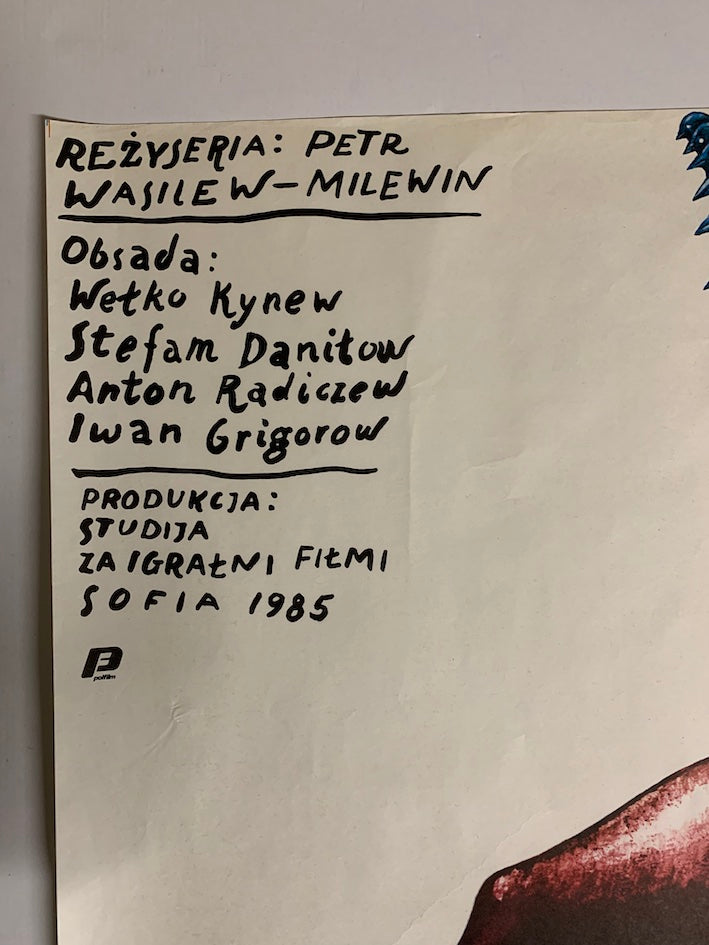 REŻYSERIA: PETR
WASILEW-MILEWIN
Obsada:
Wełko Kynew
Stefam Daniłow
Anton Radiczew
Iwan Grigorow
PRODUKCJA:
STUDIJA
ZA IGRAŁNI FIŁMI
SOFIA 1985
polfilm